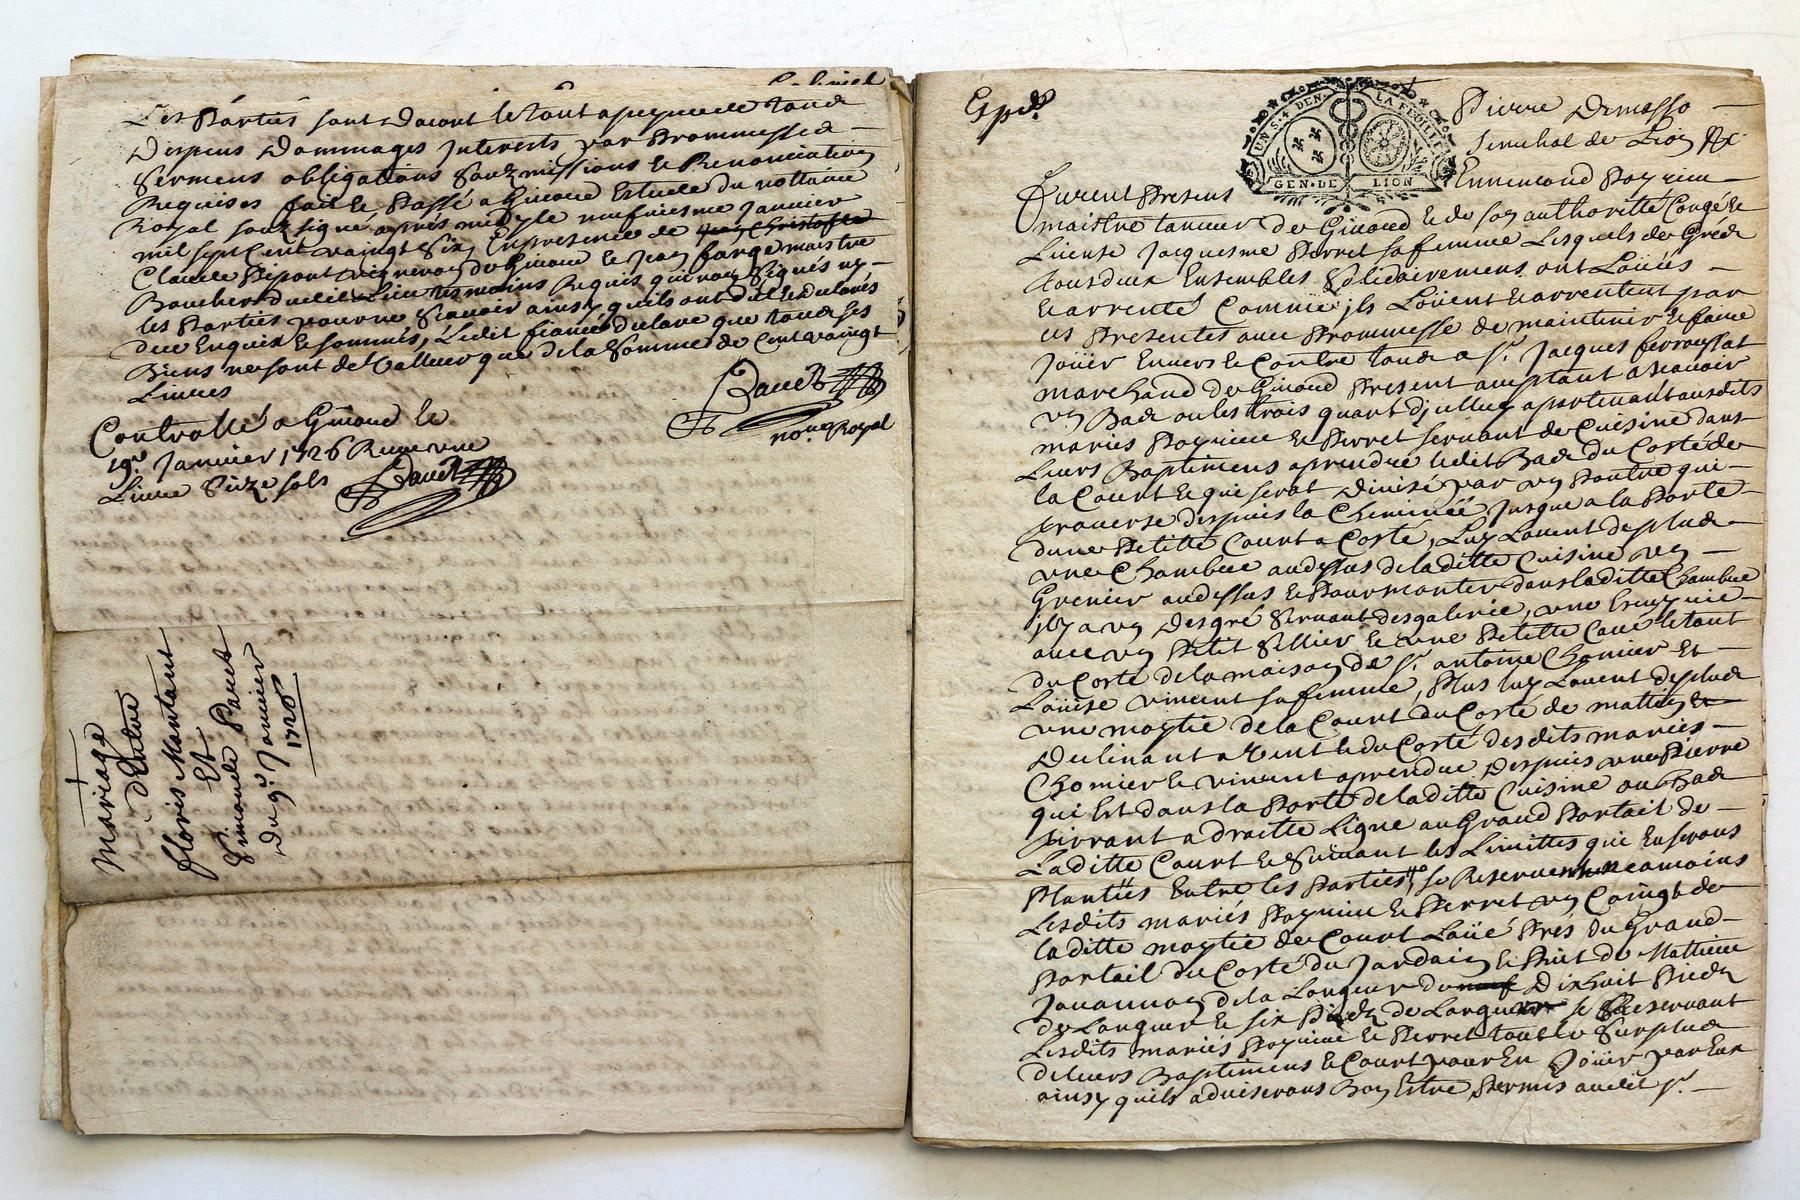 Les Parties sont dacort le tout a peyne de toud
Despens Dommages Interests par Prommesse de
Sermens obligations Soubzmissions et Renonciations
Requises fait et Passé a Givord Estude du nottaire
Royal soubzsigné aprés midy le neufviesme Janvier
mil sept Cent vaingt Six, En presence de
Claude Depont vigneron de Givord et Jean farge maistre
Boucher dudit Lieu tesmoins Requis qui non Signés ny
les Parties pour ne Scavoir ainsy quils ont dit et declarés
de ce Enquis et sommés, Ledit fiancé declare que toud ses
Biens ne sont de Valleur que de la Somme de Cent vaingt
Livres
nore Royal
Controllé a Givord le
19e Janvier 1726 Receu une
Livre Seize sols
Mariage
d'Entre
floris Montant
Et
Simonde Paret
Du 9e Janvier
1726
Expd.
UN S. 4 DEN. LA FEUILLE
GEN. DE LION
Pierre Demasso
Senechal de Lion &c
Furent Presens Ennemond Poyrieu
maistre tanneur de Givord et de son authorité Congé et
License Jacquesme Perret sa femme Lesquels de Gred
tous deux Ensembles Solidairemens ont Loüés
Et arrenté Comme ils Loüent et arrentent par
ces Presentes avec Prommesse de maintenir et faire
Joüir Envers et Contre toud a Sr. Jacques ferroussat
marchand de Givord Present acceptant a scavoir
un Bad ou les trois quart d'jcelluy apartenant ausdits
mariés Poyrieu et Perret servant de Cuisine dans
Leurs Baptimens a prendre ledit Bad du Costé de
la Court et qui serat Divisé par un Pontre qui
traverse despuis la Cheminée Jusque a la Porte
dune Petitte Court a Costé, Luy Loüent de plud
une Chambre au dessus de laditte Cuisine un
Grenier au dessus et Pour monter dans laditte Chambre
jl y a un Desgré Servant des galerie, une Escuyrie
avec un Petit Sellier et une Petitte Cave le tout
du Costé de la maison de Sr. antoine Chomier et
Loüise vincent sa femme, Plus luy Loüent de plud
une moytié de la Court du Costé de mattin
Declinant a Vent et du Costé desdits mariés
Chomier et vincent a prendre Despuis une Pierre
qui Est dans la Porte de laditte Cuisine ou Bad
tirrant a droitte Ligne au Grand Portail de
Laditte Court et Suivant les Limittes qui En serons
Plantées Entre les Parties, se Reservent neamoins
Lesdits mariés Poyrieu et Perret un Coingt de
laditte moytié de Court Loüé Prés du Grand
Portail du Costé du Jardain et Puit de Mathieu
Jouannon de la Longueur de Dixhuit Pieds
de Longueur et six Pieds de Largeur se Reservant
Lesdits mariés Poyrieu et Perret tout le Surplud
de leurs Baptimens et Court pour En Joüir par Eux
ainsy quils adviserons Bon Estre Permis audit Sr.